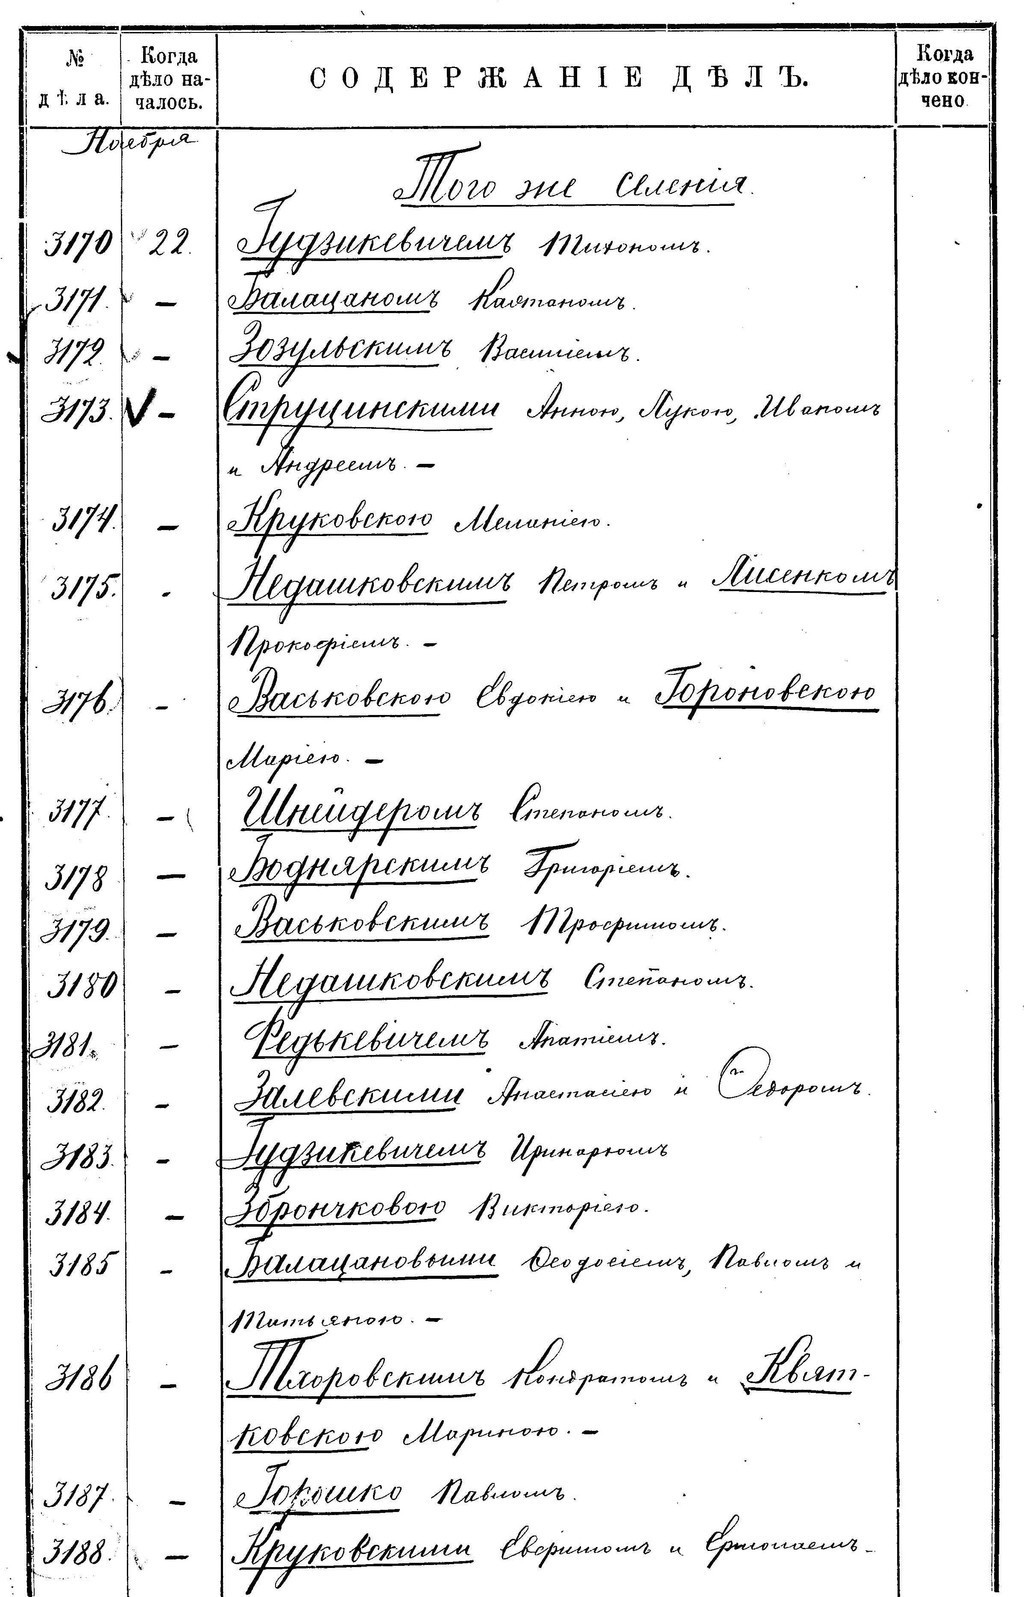 № дѣла.
Когда дѣло на-
чалось.
СОДЕРЖАНІЕ ДѢЛЪ.
Когда дѣло кон-
чено
Ноября
Того же селенія.
3170 22. Гудзикевичемъ Тихономъ.
3171. — Балацаномъ Каэтаномъ.
3172. — Зозульскимъ Василіемъ.
3173. V — Струцинскими Анною, Лукою, Иваномъ
и Андреемъ. —
3174. — Круковскою Меланіею.
3175. - Недашковскимъ Петромъ и Лисенкомъ
Прокофіемъ. —
3176. — Васьковскою Евдокіею и Гороновскою
Маріею. —
3177. — Шнейдеромъ Степаномъ.
3178 — Боднярскимъ Григоріемъ.
3179. — Васьковскимъ Трофимомъ.
3180 — Недашковскимъ Степаномъ.
3181. — Редькевичемъ Ипатіемъ.
3182. — Залевскими Анастасіею и Ѳедоромъ.
3183. — Гудзикевичемъ Иринархомъ
3184. — Збрончковою Викторіею.
3185 — Балацановыми Ѳеодосіемъ, Павломъ и
Татьяною. —
3186 — Тхоровскимъ Кондратомъ и Квят-
ковскою Мариною. —
3187. — Горошко Павломъ.
3188. — Круковскими и Ермолаемъ-